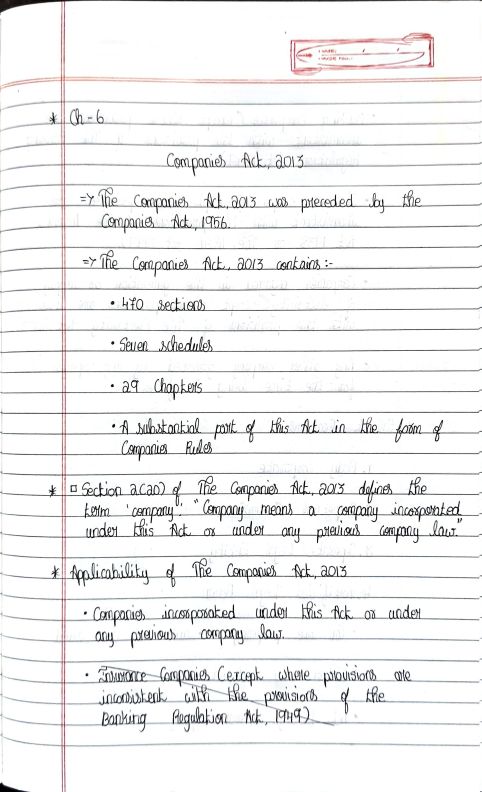 * Ch-6
Companies Act, 2013
=> The Companies Act, 2013 was preceded by the
Companies Act, 1956.
=> The Companies Act, 2013 contains:-
• 470 sections
• Seven schedules
• 29 Chapters
• A substantial part of this Act in the form of
Companies Rules
* □ Section 2(20) of The Companies Act, 2013 defines the
term 'company' "Company means a company incorporated
under this Act or under any previous company law."
* Applicability of The Companies Act, 2013
• Companies incorporated under this Act or under
any previous company law.
• Insurance Companies (except where provisions are
inconsistent with the provisions of the
Banking Regulation Act, 1949)